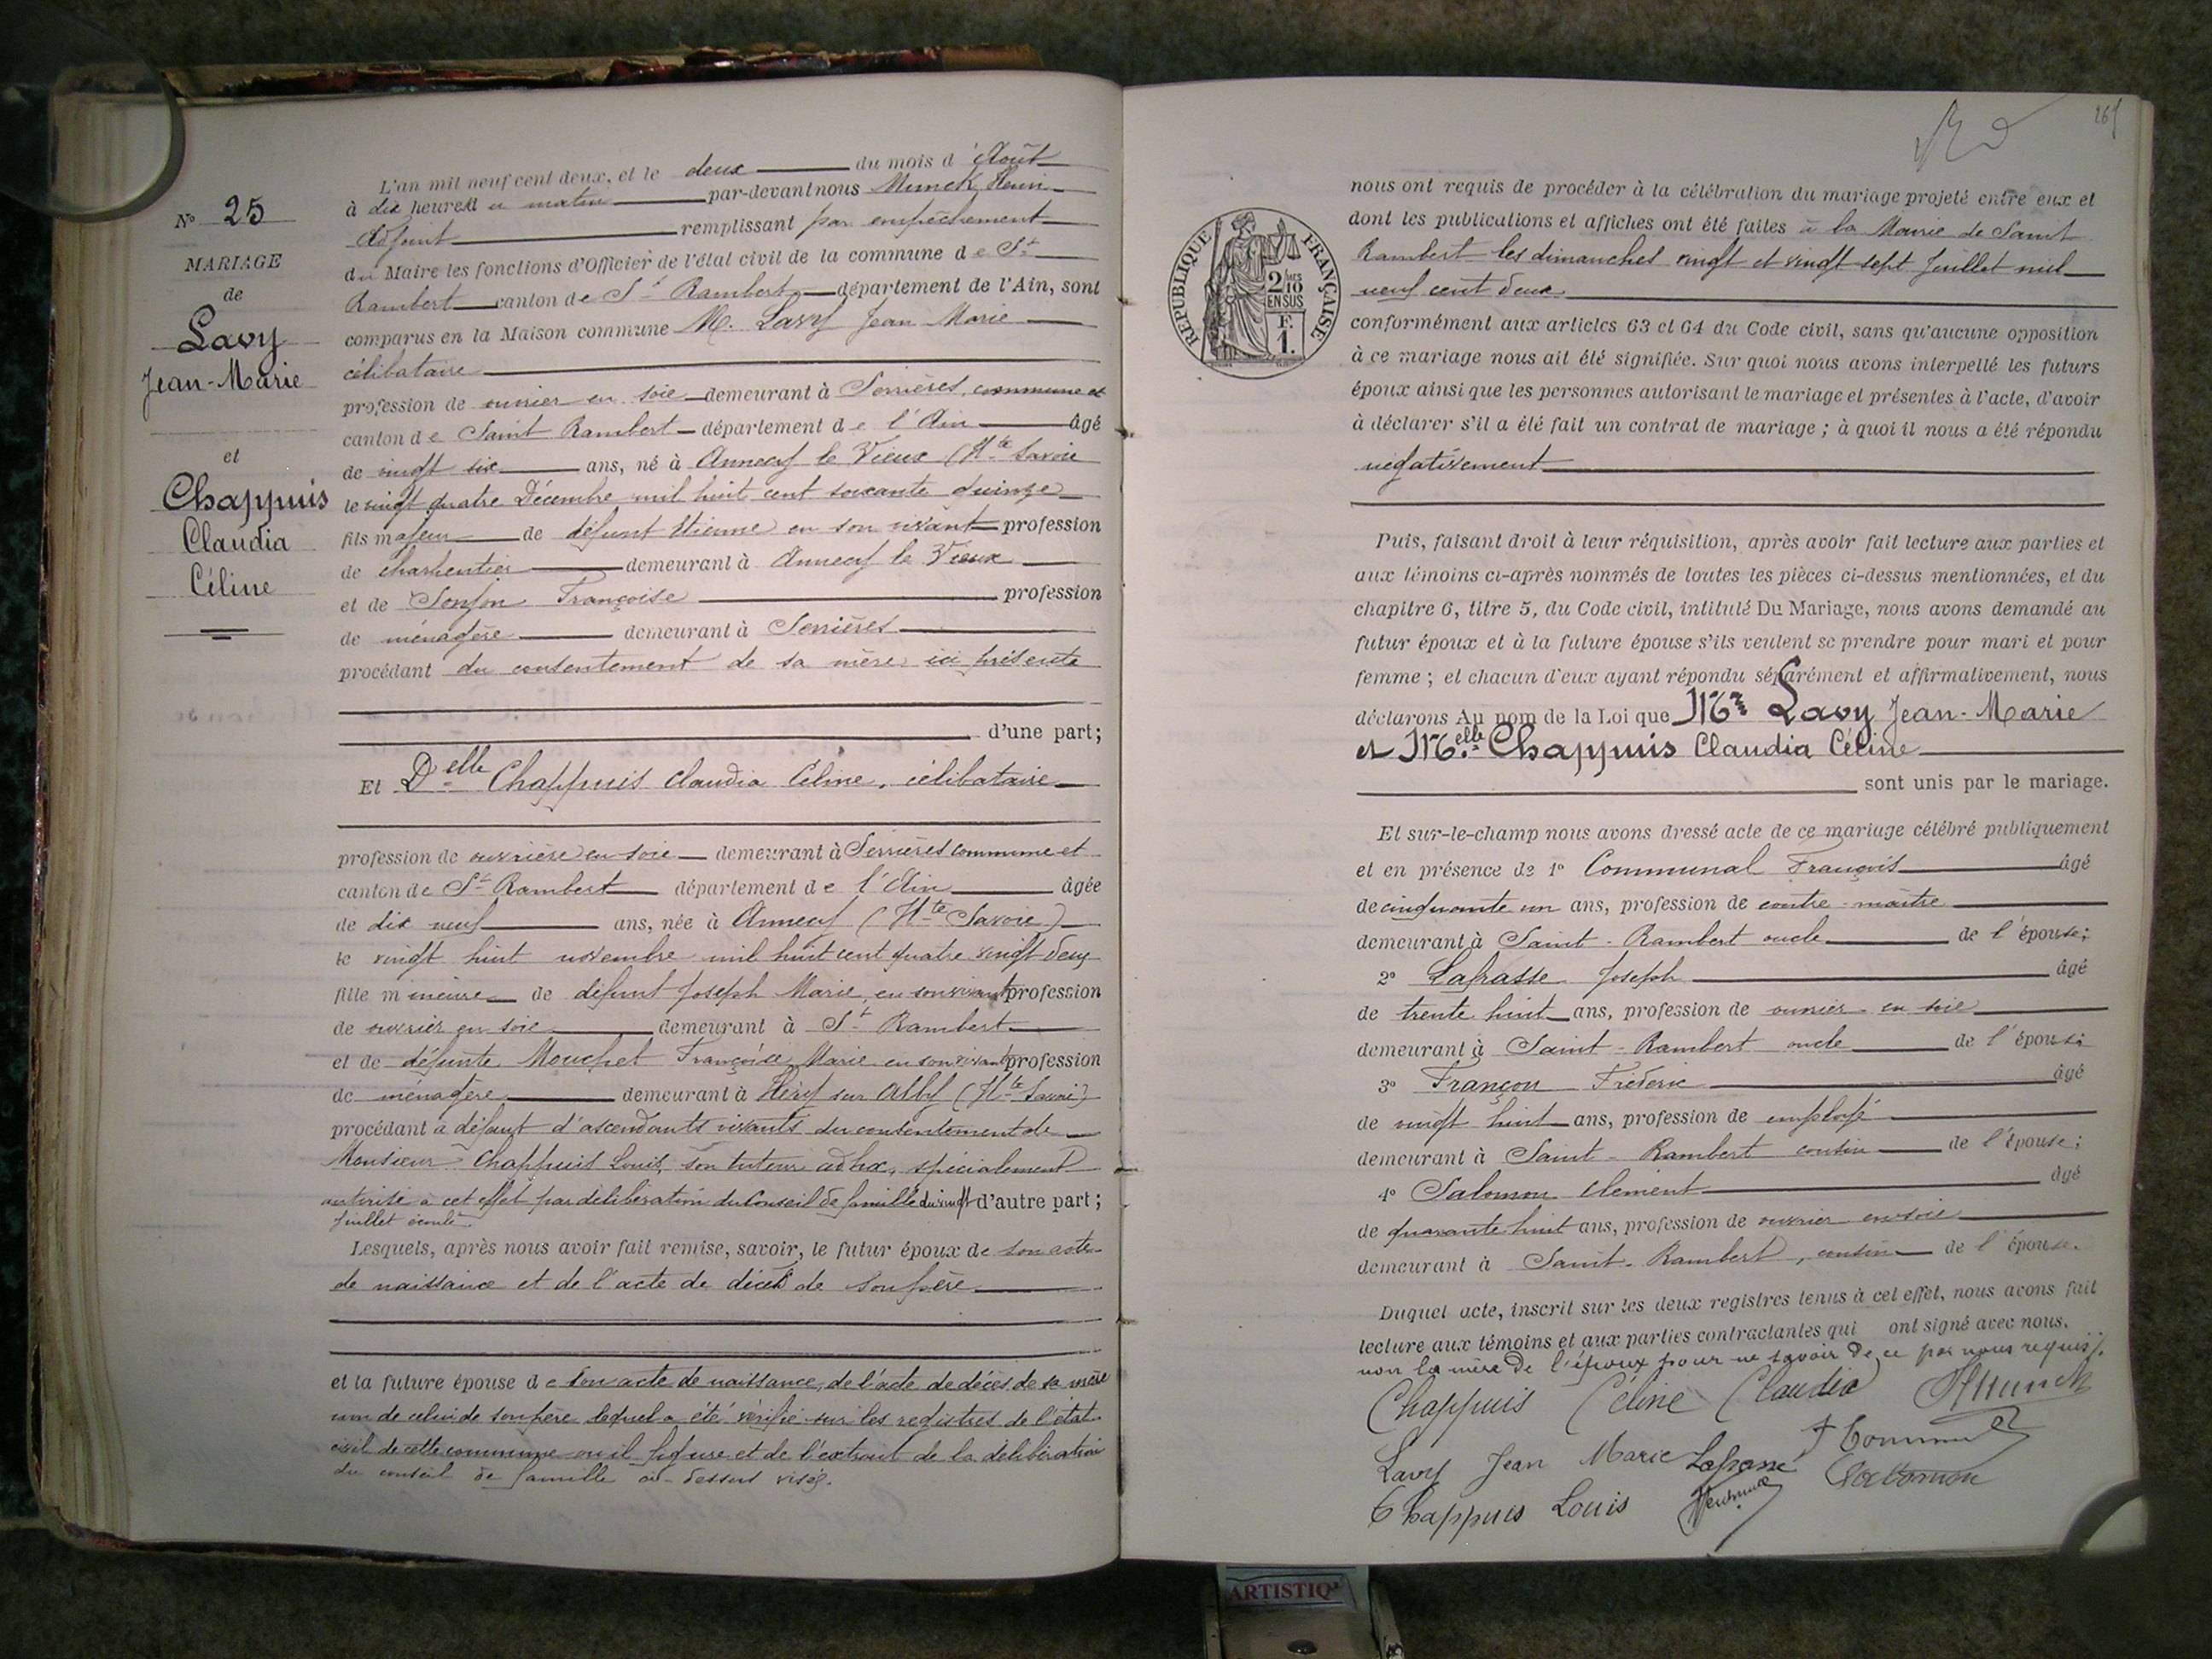 N° 25
MARIAGE
de
Lavy
Jean-Marie
et
Chappuis
Claudia
Céline
L'an mil neuf cent deux, et le deux du mois d'Août
à dix heures du matin par-devant nous Munck Henri
adjoint remplissant par empêchement
du Maire les fonctions d'Officier de l'état civil de la commune de St
Rambert canton de St Rambert département de l'Ain, sont
comparus en la Maison commune M. Lavy Jean Marie
célibataire
profession de ouvrier en soie demeurant à Serrières, commune et
canton de Saint Rambert département de l'Ain âgé
de vingt six ans, né à Annecy le Vieux (Hte Savoie
le vingt quatre Décembre mil huit cent soixante quinze
fils majeur de défunt Etienne en son vivant profession
de charpentier demeurant à Annecy le Vieux
et de Françoise profession
de ménagère demeurant à Serrières
procédant du consentement de sa mère ici présente
d'une part;
Et Delle Chappuis Claudia Céline, célibataire
profession de ouvrière en soie demeurant à Serrières commune et
canton de St Rambert département de l'Ain âgée
de dix neuf ans, née à Annecy (Hte Savoie)
le vingt huit novembre mil huit cent quatre vingt deux
fille mineure de défunt Joseph Marie, en son vivant profession
de ouvrier en soie demeurant à St Rambert
et de défunte Mouchet Françoise Marie en son vivant profession
de ménagère demeurant à Héry sur Alby (Hte Savoie)
procédant à défaut d'ascendants vivants du consentement de
Monsieur Chappuis Louis, son tuteur adhoc, spécialement
autorisé à cet effet par délibération du Conseil de famille du vingt d'autre part;
Juillet écoulé.
Lesquels, après nous avoir fait remise, savoir, le futur époux de son acte
de naissance et de l'acte de décès de son père
et la future épouse de son acte de naissance, de l'acte de décès de sa mère
non de celui de son père lequel a été vérifié sur les registres de l'état
civil de cette commune où il figure et de l'extrait de la délibération
du conseil de famille ci-dessus visée.
265
RÉPUBLIQUE FRANÇAISE
2/10
EN SUS
F.
1.
nous ont requis de procéder à la célébration du mariage projeté entre eux et
dont les publications et affiches ont été faites à la Mairie de Saint
Rambert les dimanches vingt et vingt sept Juillet mil
neuf cent deux
conformément aux articles 63 et 64 du Code civil, sans qu'aucune opposition
à ce mariage nous ait été signifiée. Sur quoi nous avons interpellé les futurs
époux ainsi que les personnes autorisant le mariage et présentes à l'acte, d'avoir
à déclarer s'il a été fait un contrat de mariage; à quoi il nous a été répondu
négativement
Puis, faisant droit à leur réquisition, après avoir fait lecture aux parties et
aux témoins ci-après nommés de toutes les pièces ci-dessus mentionnées, et du
chapitre 6, titre 5, du Code civil, intitulé Du Mariage, nous avons demandé au
futur époux et à la future épouse s'ils veulent se prendre pour mari et pour
femme; et chacun d'eux ayant répondu séparément et affirmativement, nous
déclarons Au nom de la Loi que Mr Lavy Jean-Marie
et Melle Chappuis Claudia Céline
sont unis par le mariage.
Et sur-le-champ nous avons dressé acte de ce mariage célébré publiquement
et en présence de 1° Communal François âgé
de cinquante un ans, profession de contre-maître
demeurant à Saint-Rambert oncle de l'épouse;
2° Lafrasse Joseph âgé
de trente huit ans, profession de ouvrier en soie
demeurant à Saint-Rambert oncle de l'épouse
3° Françon Frédéric âgé
de vingt huit ans, profession de employé
demeurant à Saint-Rambert cousin de l'épouse;
4° Salomon Clément âgé
de quarante huit ans, profession de ouvrier en soie
demeurant à Saint-Rambert, cousin de l'épouse.
Duquel acte, inscrit sur les deux registres tenus à cet effet, nous avons fait
lecture aux témoins et aux parties contractantes qui ont signé avec nous.
non la mère de l'époux pour ne savoir de ce par nous requis.
Chappuis Céline Claudia HMunck
Lavy Jean Marie
Chappuis Louis
ARTISTIQ